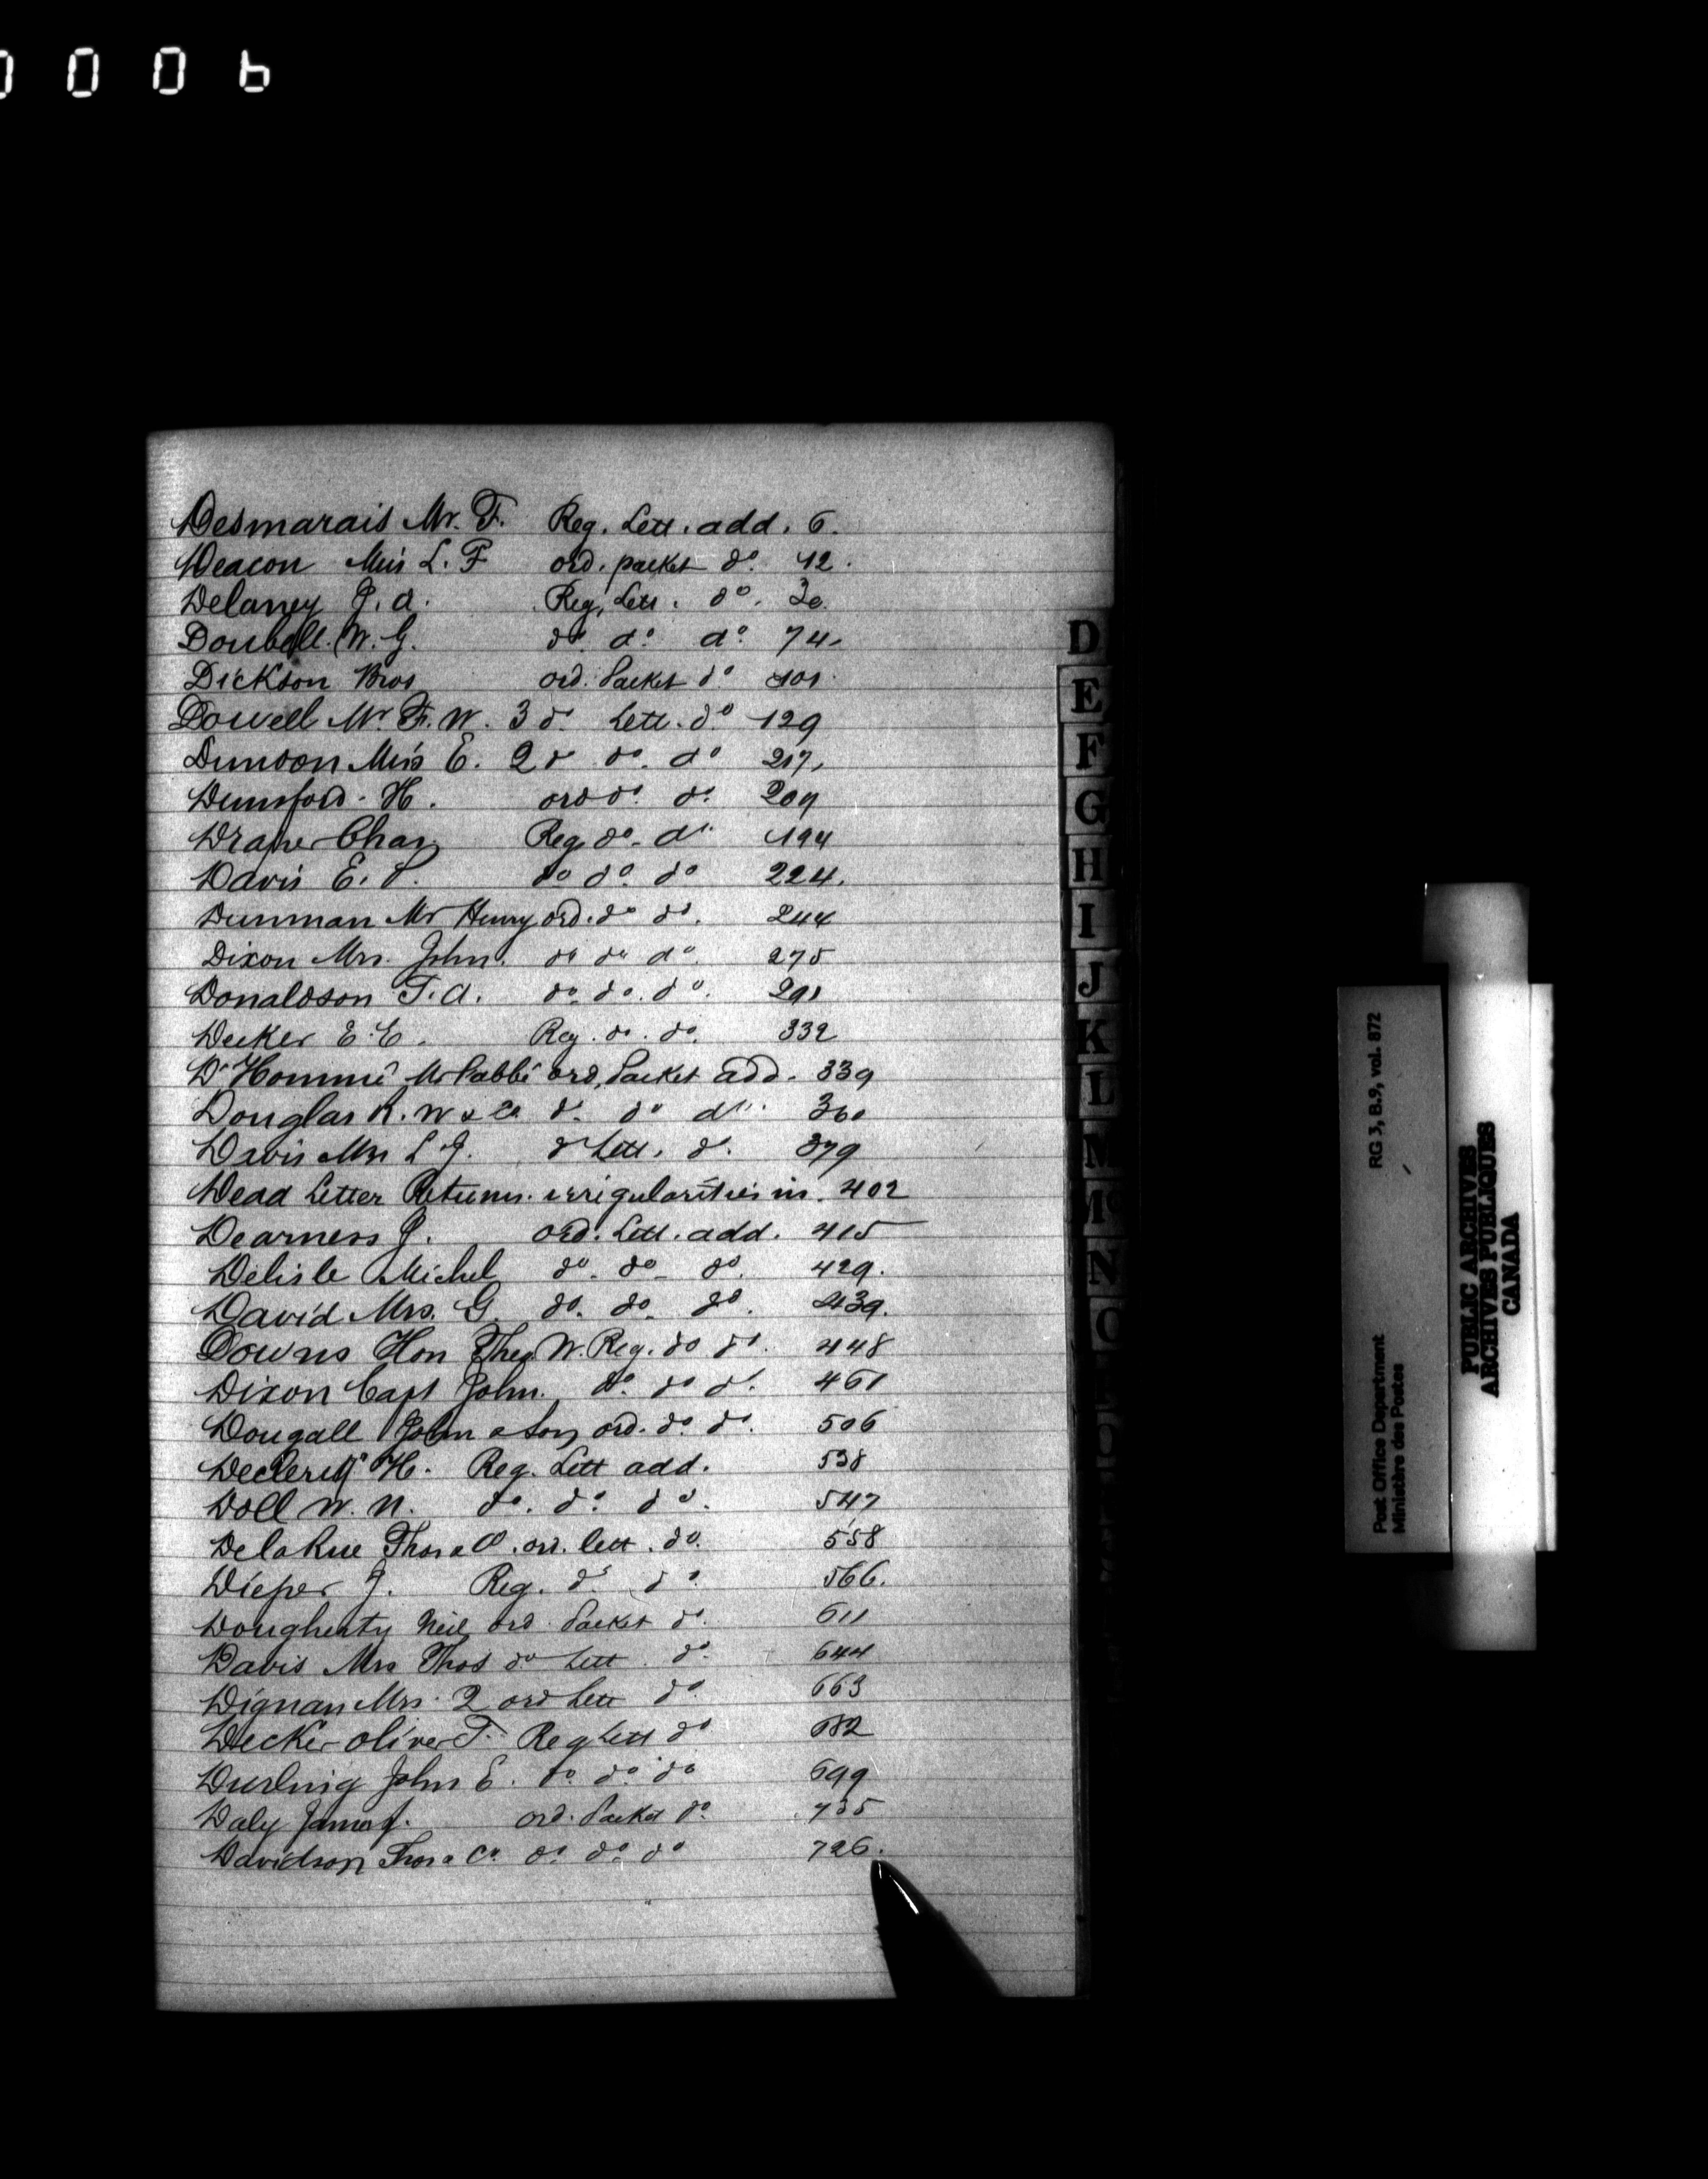 0 0 0 6
Desmarais Mr. F. Reg. Lett. add. 6.
Deacon Miss L. F ord. packet do. 12.
Delaney J. A. Reg. Lett. do. 30.
Dowball W. G. do. do. do. 74.
Dickson Bros ord. Packet do 101.
Dowell Mr. F. W. 3 do Lett. do 129
Dunson Miss E. 2 do do. do 217.
Dunsford H. ord do. do. 209
Draper Chas Reg. do. do. 194
Davis E. P. do do. do 224.
Dunman Mr Henry ord. do do. 244
Dixon Mrs. John. do do do. 275
Donaldson T. A. do. do. do. 291
Decker E. C. Reg. do. do. 332
D'Hommé Mr l'abbé ord. Packet add. 339
Douglas R. W & Co do. do do. 360
Davis Mrs L J. do Lett. do. 379
Dead Letter Returns. irregularities in. 402
Dearness J. ord. Lett. add. 415
Delisle Michel do. do do. 429.
David Mrs. G. do. do. do. 439.
Downs Hon Theo W. Reg. do do. 448
Dixon Capt John. do. do do. 461
Dougall John & Son ord. do. do. 506
H. Reg. Lett add. 538
Doll W. N. do. do. do. 547
DelaRue Thos & C. ord. lett. do. 558
Dieper J. Reg. do do. 566.
Dougherty Neil ord. Packet do. 611
Davis Mrs Thos do Lett. do. 644
Dignan Mrs. 2 ord Lett do. 663
Decker Oliver T. Reg Lett do 682
Durling John E. do. do. do 699
Daly James J. ord. Packet do. 735
Davidson Thos & Co. do. do. do 726.
D
E
F
G
H
I
J
K
L
M
N
O
RG 3, B.9, vol. 872
Post Office Department
Ministère des Postes
PUBLIC ARCHIVES
ARCHIVES PUBLIQUES
CANADA